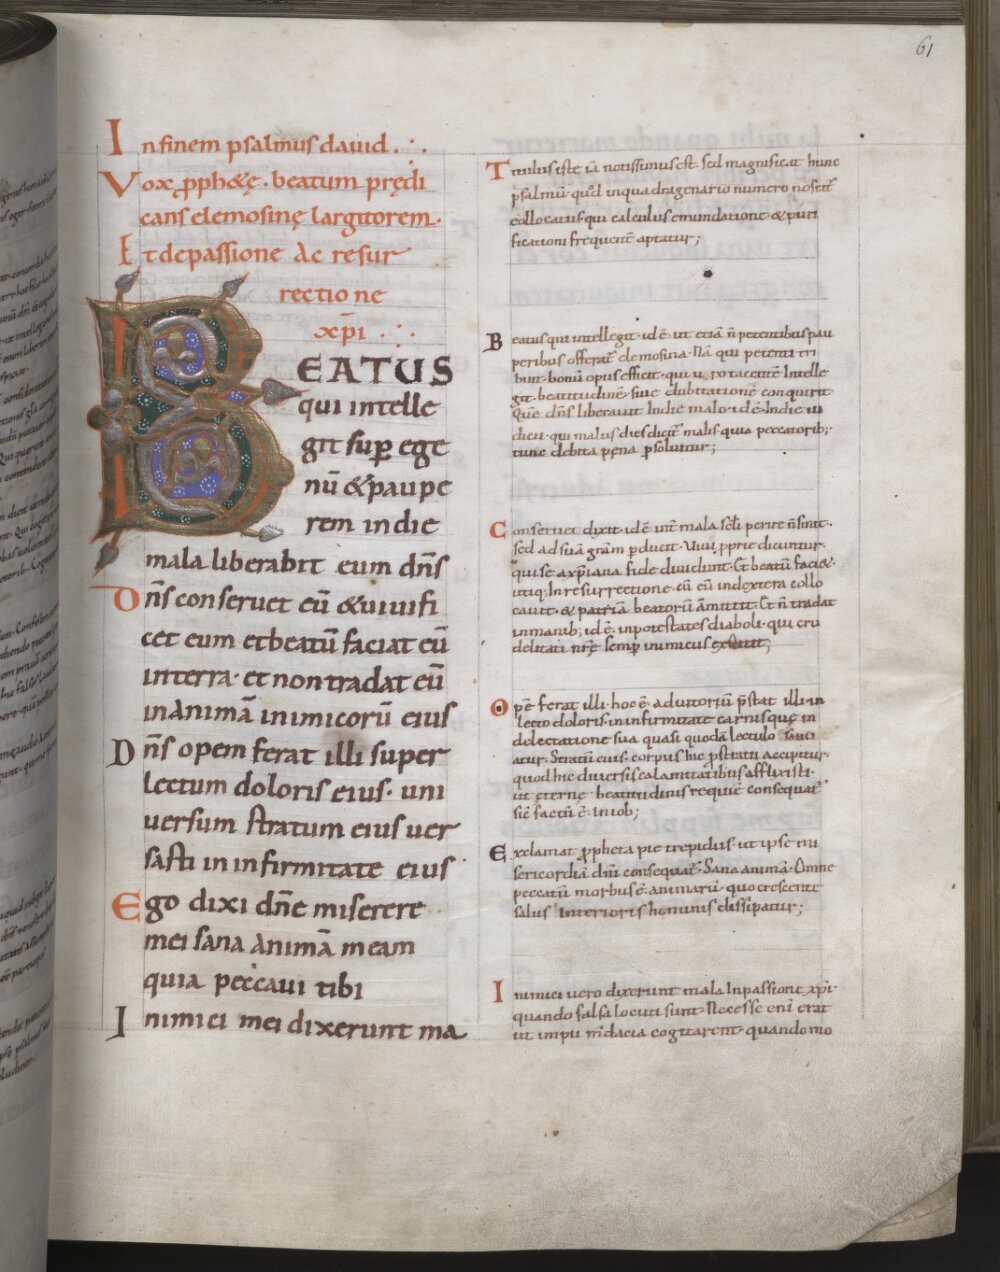 61
In finem psalmus david
Vox pphȩ. beatum prędi
cans elemosinę largitorem.
Et de passione Ac resur
rectione
xp̄i
BEATUS
qui intelle
git sup ege
nū & paupe
rem in die
mala liberabit eum dn̄s
Dn̄s conservet eū & vivifi
cet eum et beatū faciat eū
in terra. et non tradat eū
in animā inimicorū eius
Dn̄s opem ferat illi super
lectum doloris eius. uni
versum stratum eius ver
sasti in infirmitate eius
Ego dixi dn̄e miserere
mei sana animā meam
quia peccavi tibi
Inimici mei dixerunt ma
Titulus iste iā notissimus est. sed magnificat hunc
psalmū quod in quadragenario numero noscit̄
collocatus qui calculus emundationi & puri
ficationi frequent̄ aptatur;
Beatus qui intellegit. id ē. ut etiā n̄ petentibus pau
peribus offerat̄ elemosina. Nā qui petenti tri
buit. bonū opus efficit. qui u. ro tacentē Intelle
git. beatitudinē sine dubitatione conquirit
Quē dn̄s liberavit In die malo. id ē. In die iu
dicii. qui malus dies dicit̄ malis quia peccatorib;
tunc debita pena psolvitur;
Conservet dixit. id ē int̄ mala scl̄i perire n̄ sinit.
sed ad suā grām pducit. Vivi pprie dicuntur.
qui se a xp̄iana fide dividunt. Et beatū faci&
utiq; In resurrectione. cū eū in dextera collo
cavit. & patriā beatorū āmittit. Et n̄ tradat
in manib; id ē. in potestates diaboli. qui cru
delitati nr̄ę semp inimicus
Opē ferat illi. hoc ē adiutoriū p̄stat illi in
lecto doloris in infirmitate carnisque in
delectatione sua quasi quodā lectulo
atur. Stratū eius. corpus hic pstituti accipitur.
quod hic diversis calamitatibus afflixisti.
ut eternę beatitudinis requiē consequat̄
sic factū ē. in iob;
Exclamat propheta pie trepidus. ut ipse mi
sericordiā dn̄i consequat̄. Sana animā. Omne
peccatū morbus ē. animarū. quo crescente
salus interioris hominis dissipatur;
Inimici vero dixerunt mala In passione xp̄i.
quando falsa locuti sunt. Necesse eni erat
ut impii m̄dacia cogitarent. quando mo